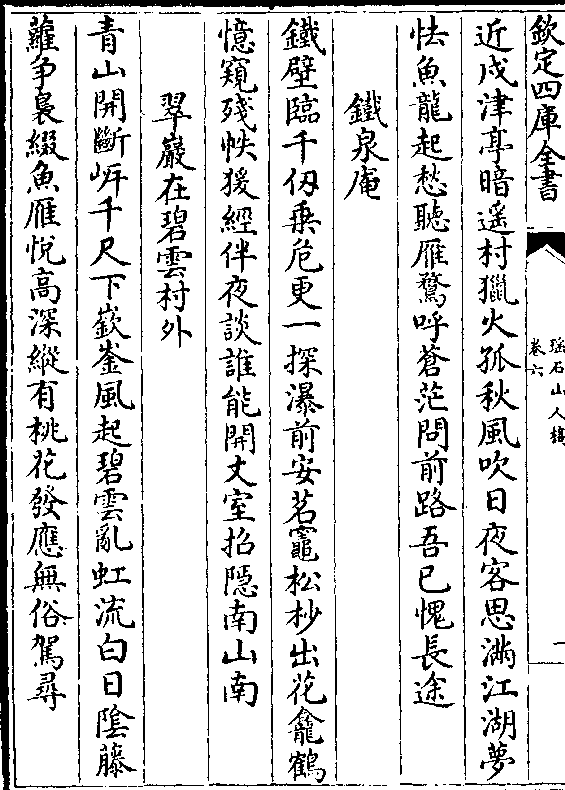 欽定四庫全書
瑶石山人稿
卷六
一
近戍津亭暗遥村獵火孤秋風吹日夜客思滿江湖夢
怯魚龍起愁聽雁鶩呼蒼茫問前路吾已愧長途
鐵泉庵
鐵壁臨千仭乗危更一探瀑前安茗竈松杪出花龕鶴
憶窺殘帙猨經伴夜談誰能開丈室招隠南山南
翠巖在碧雲村外
青山開斷㟁千尺下嶔崟風起碧雲亂虹流白日隂藤
蘿争裊綴魚雁悦高深縱有桃花發應無俗駕尋